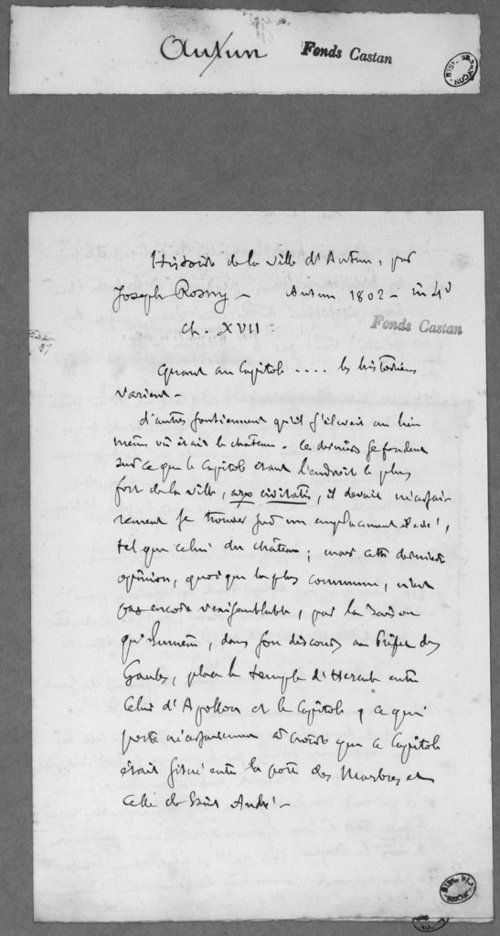 Autun Fonds Castan
Histoire de la ville d'Autun, par
Joseph Rosny - Autun 1802 - in 4°
ch. XVII :
Fonds Castan
Quant au Capitole .... les historiens
varient -
d'autres soutiennent qu'il s'élevait au lieu
même où était le château. Ces derniers se fondent
sur ce que le Capitole étant l'endroit le plus
fort de la ville, arx civitatis, il devait nécessai-
rement se trouver sur un emplacement élevé,
tel que celui du château ; mais cette dernière
opinion, quoique la plus commune, n'est
pas encore vraisemblable, par la raison
qu'Eumène, dans son discours au Préfet des
Gaules, place le temple d'Hercule entre
celui d'Apollon et le Capitole, ce qui
porte nécessairement à croire que ce Capitole
était situé entre la porte des Marbres et
celle de Saint André -